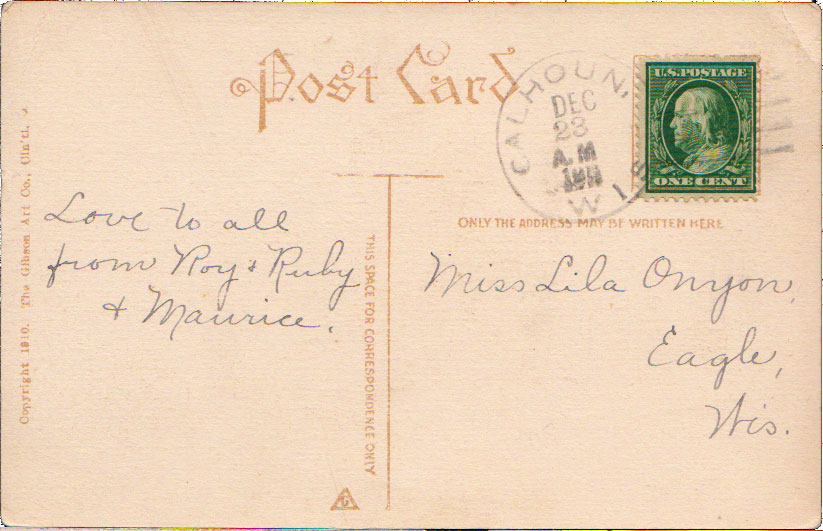 Post Card
CALHOUN,
WIS
DEC
23
A.M
U.S. POSTAGE
ONE CENT
ONLY THE ADDRESS MAY BE WRITTEN HERE
THIS SPACE FOR CORRESPONDENCE ONLY
Copyright 1910. The Gibson Art Co., Cin'ti.
Love to all
from Roy & Ruby
& Maurice.
Miss Lila Onyon,
Eagle,
Wis.
G